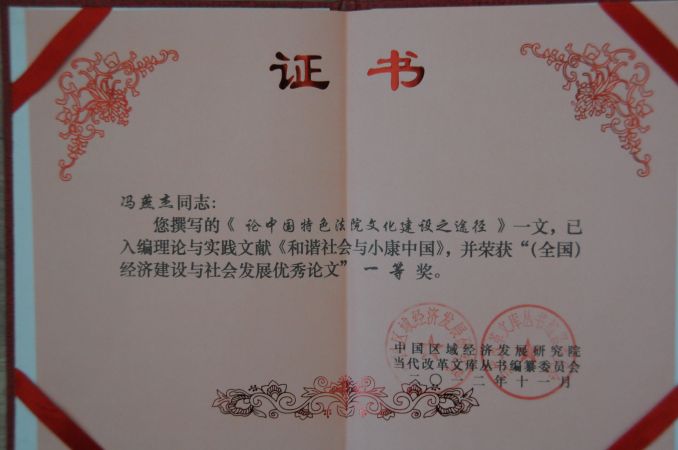 证书
冯燕杰同志：
您撰写的《 论中国特色法院文化建设之途径 》一文，已
入编理论与实践文献《和谐社会与小康中国》，并荣获“（全国）
经济建设与社会发展优秀论文” 一 等 奖。
中国区域经济发展研究院
当代改革文库丛书编纂委员会
二〇一二年十一月